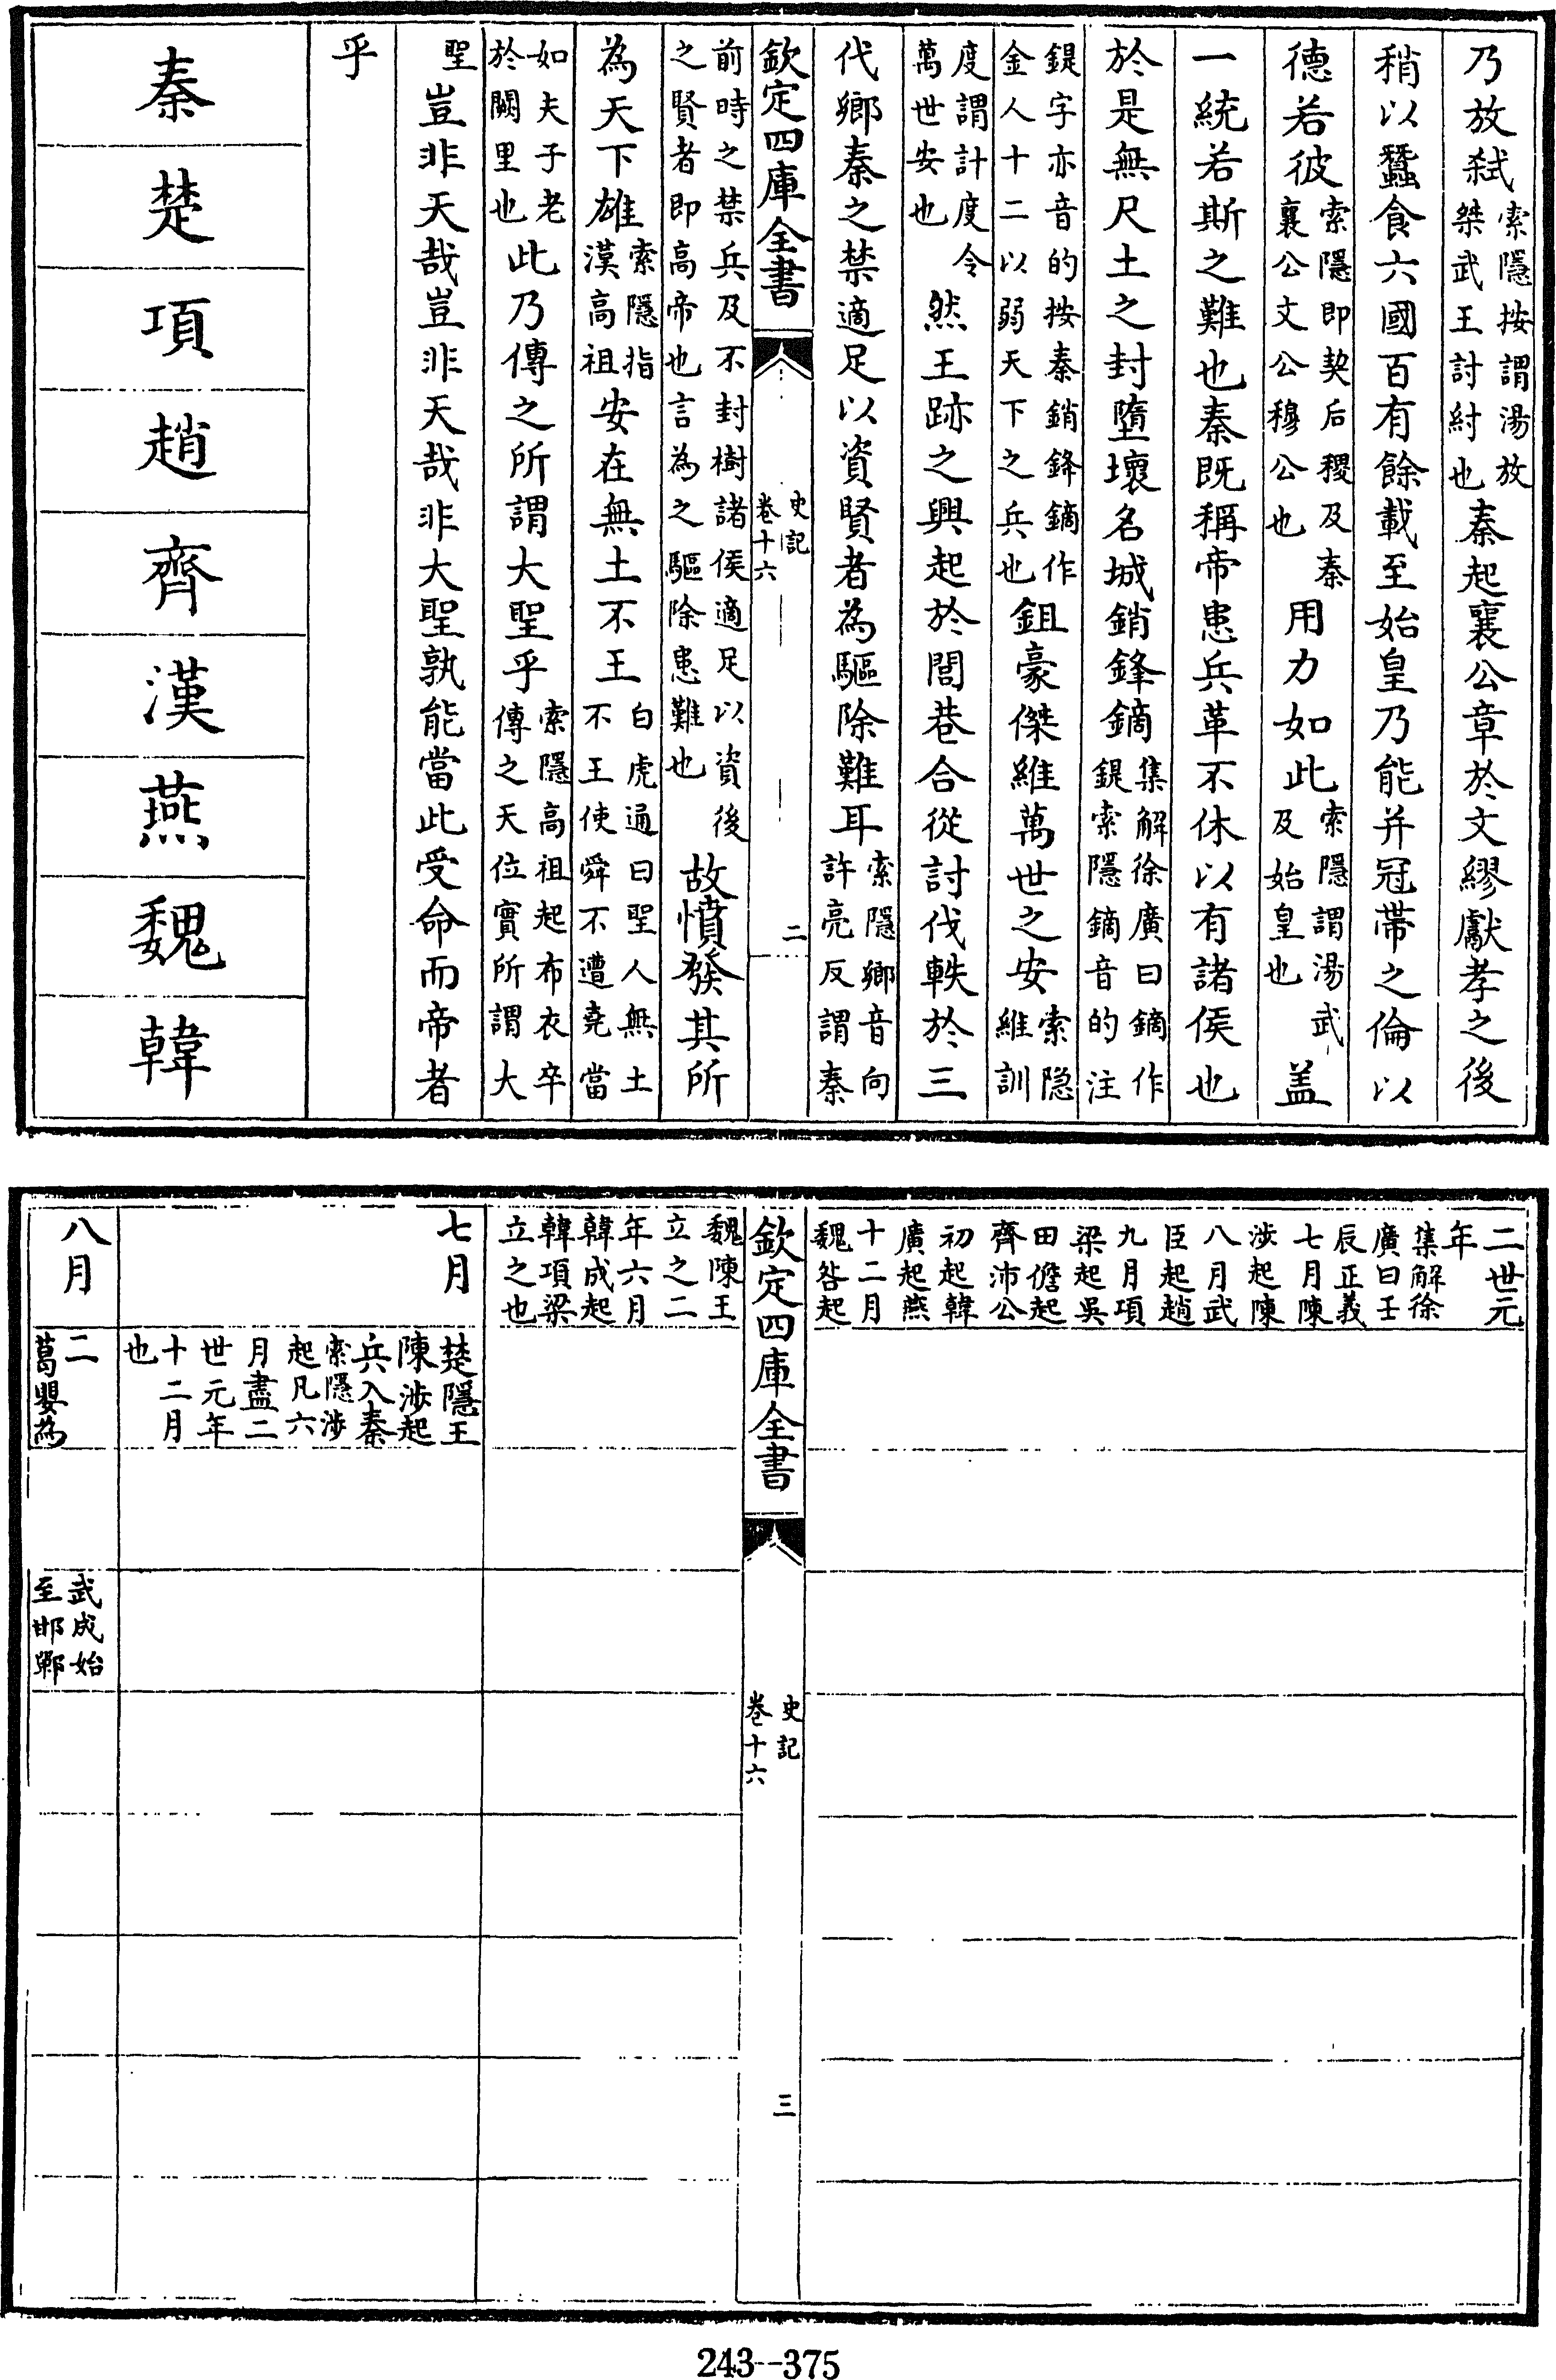 乃放弑索隱按謂湯放桀武王討紂也秦起襄公章於文繆獻孝之後
稍以蠶食六國百有餘載至始皇乃能并冠帶之倫以
德若彼索隱即契后稷及秦襄公文公穆公也用力如此索隱謂湯武及始皇也盖
一統若斯之難也秦既稱帝患兵革不休以有諸侯也
於是無尺土之封墮壞名城銷鋒鏑集解徐廣曰鏑作鍉索隱鏑音的注
鍉字亦音的按秦銷鋒鏑作金人十二以弱天下之兵也鉏豪傑維萬世之安索隐維訓
度謂計度令萬世安也然王跡之興起於閭巷合從討伐軼於三
代鄉秦之禁適足以資賢者為驅除難耳索隱鄉音向許亮反謂秦
欽定四庫全書
史記
卷十六
二
前時之禁兵及不封樹諸侯適足以資後之賢者即高帝也言為之驅除患難也故憤發其所
為天下雄索隱指漢高祖安在無土不王白虎通曰聖人無土不王使舜不遭堯當
如夫子老於闕里也此乃傳之所謂大聖乎索隱高祖起布衣卒傳之天位實所謂大
聖豈非天哉豈非天哉非大聖孰能當此受命而帝者
乎
秦
楚
項
趙
齊
漢
燕
魏
韓
二世元
年
集解徐
廣曰壬
辰正義
七月陳
涉起陳
八月武
臣起趙
九月項
梁起吳
田儋起
齊沛公
初起韓
廣起燕
十二月
魏咎起
欽定四庫全書
史記
卷十六
三
魏陳王
立之二
年六月
韓成起
韓項梁
立之也
七月
楚隱王
陳涉起
兵入秦
索隱涉
起凡六
月盡二
世元年
十二月
也
八月
二
葛嬰為
武成始
至邯鄲
243--375